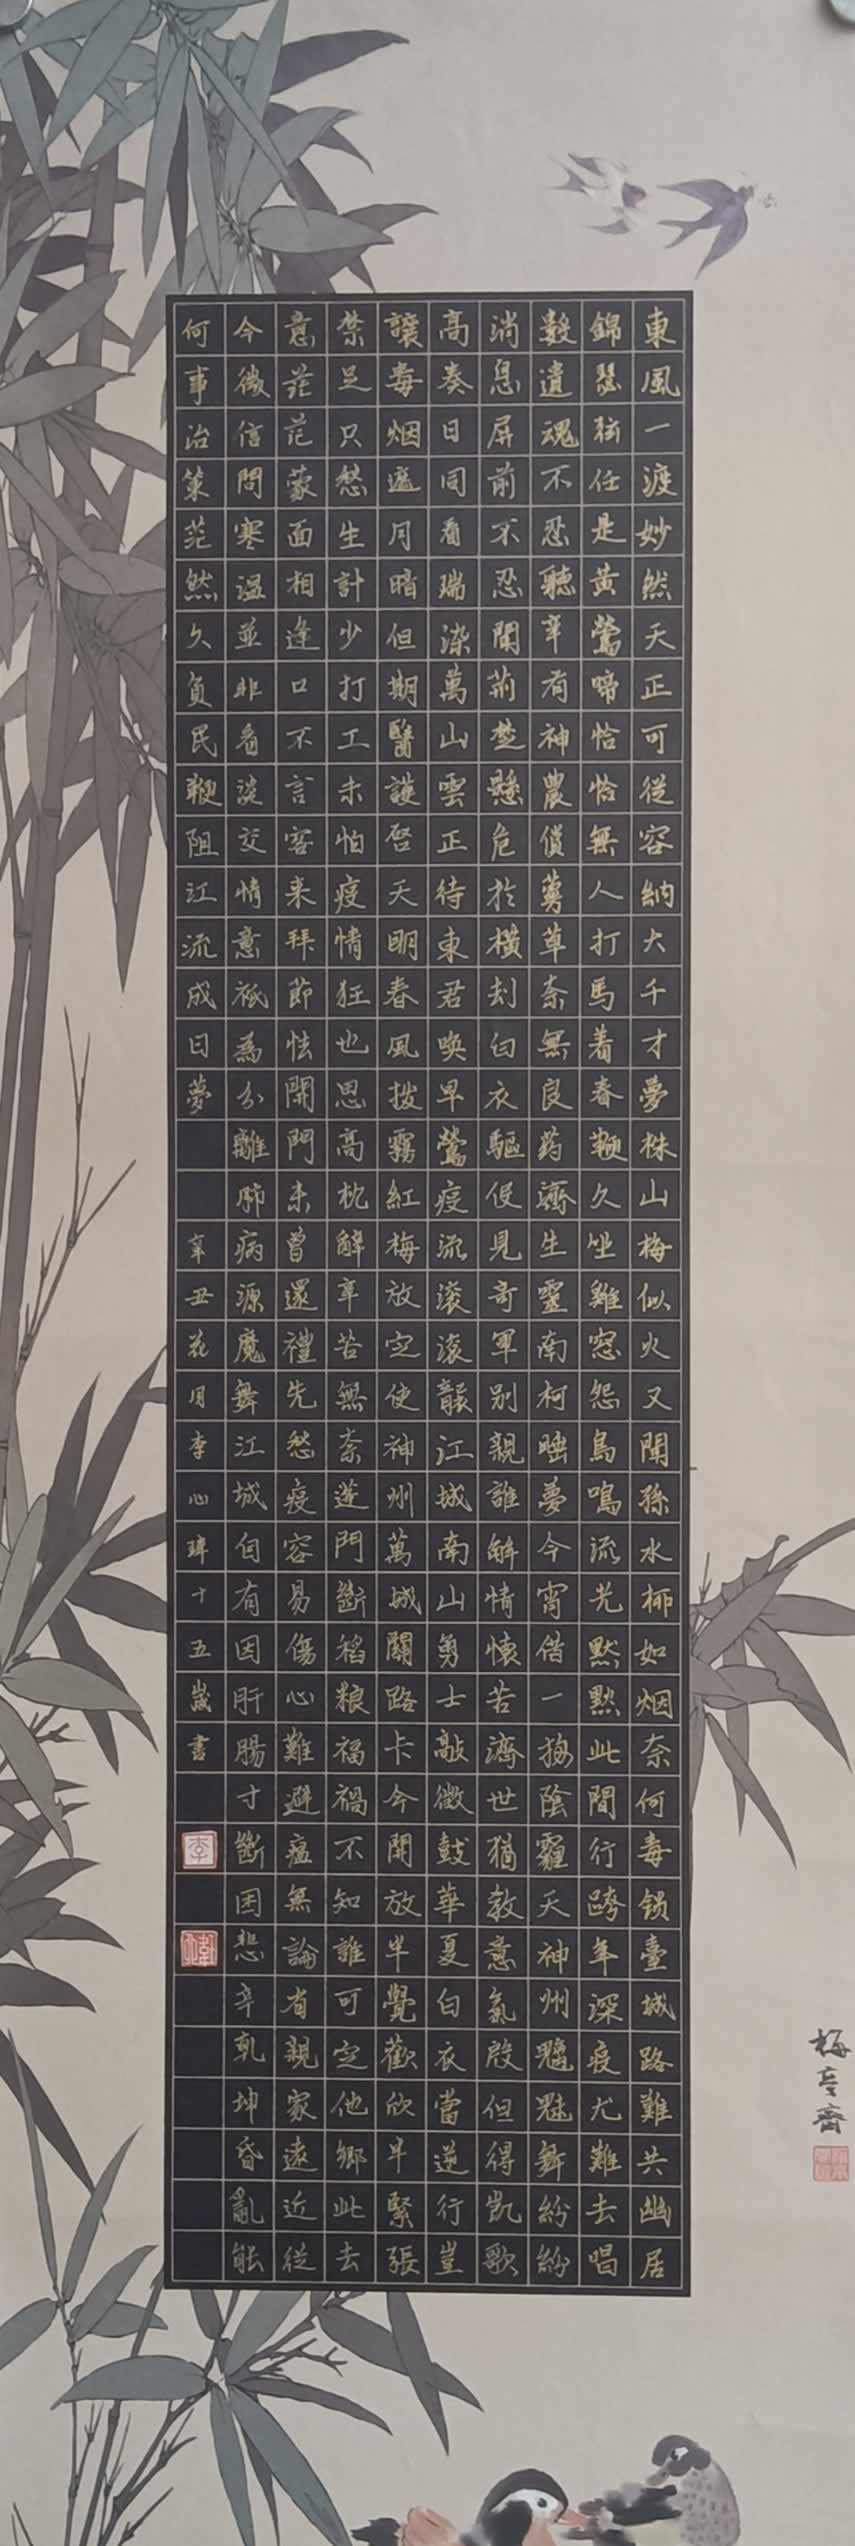 東風一渡妙然天正可從容納大千才夢株山梅似火又闻孫水柳如烟奈何毒鎖臺城路難共幽居
錦瑟弦任是黄鶯啼恰恰無人打馬着春鞭久坐雞窓怨鳥鳴流光默默此間行跨年深疫尤難去唱
數遺魂不忍聽幸有神農償萬草奈無良药濟生靈南柯睡夢今宵借一掬陰霾天神州魑魅舞紛紛
淌息屏前不忍聞荊楚懸危於橫刦白衣驅役見奇軍别親誰解情懷苦濟世猶敦意氣殷但得凱歌
高奏日同看瑞染萬山雲正待東君喚早鶯疫流滚滚襲江城南山勇士敲徵鼓華夏白衣當逆行豈
讓毒烟遮月暗但期醫護啓天明春風撥霧紅梅放定使神州萬城關路卡今開放半覺歡欣半緊張
禁足只愁生計少打工未怕疫情狂也思高枕解辛苦無奈蓬門斷稻粮福禍不知誰可定他鄉此去
意茫茫蒙面相逢口不言客来拜節怯開門未曾還禮先愁疫容易傷心難避瘟無論省親家遠近從
今微信問寒溫並非看淡交情意祇為分離肺病源魔舞江城自有因肝腸寸斷困愁辛乾坤昏亂能
何事治策茫然久負民鞭阻江流成日夢
辛丑花月李心瑋十五歲書
梅亭齋